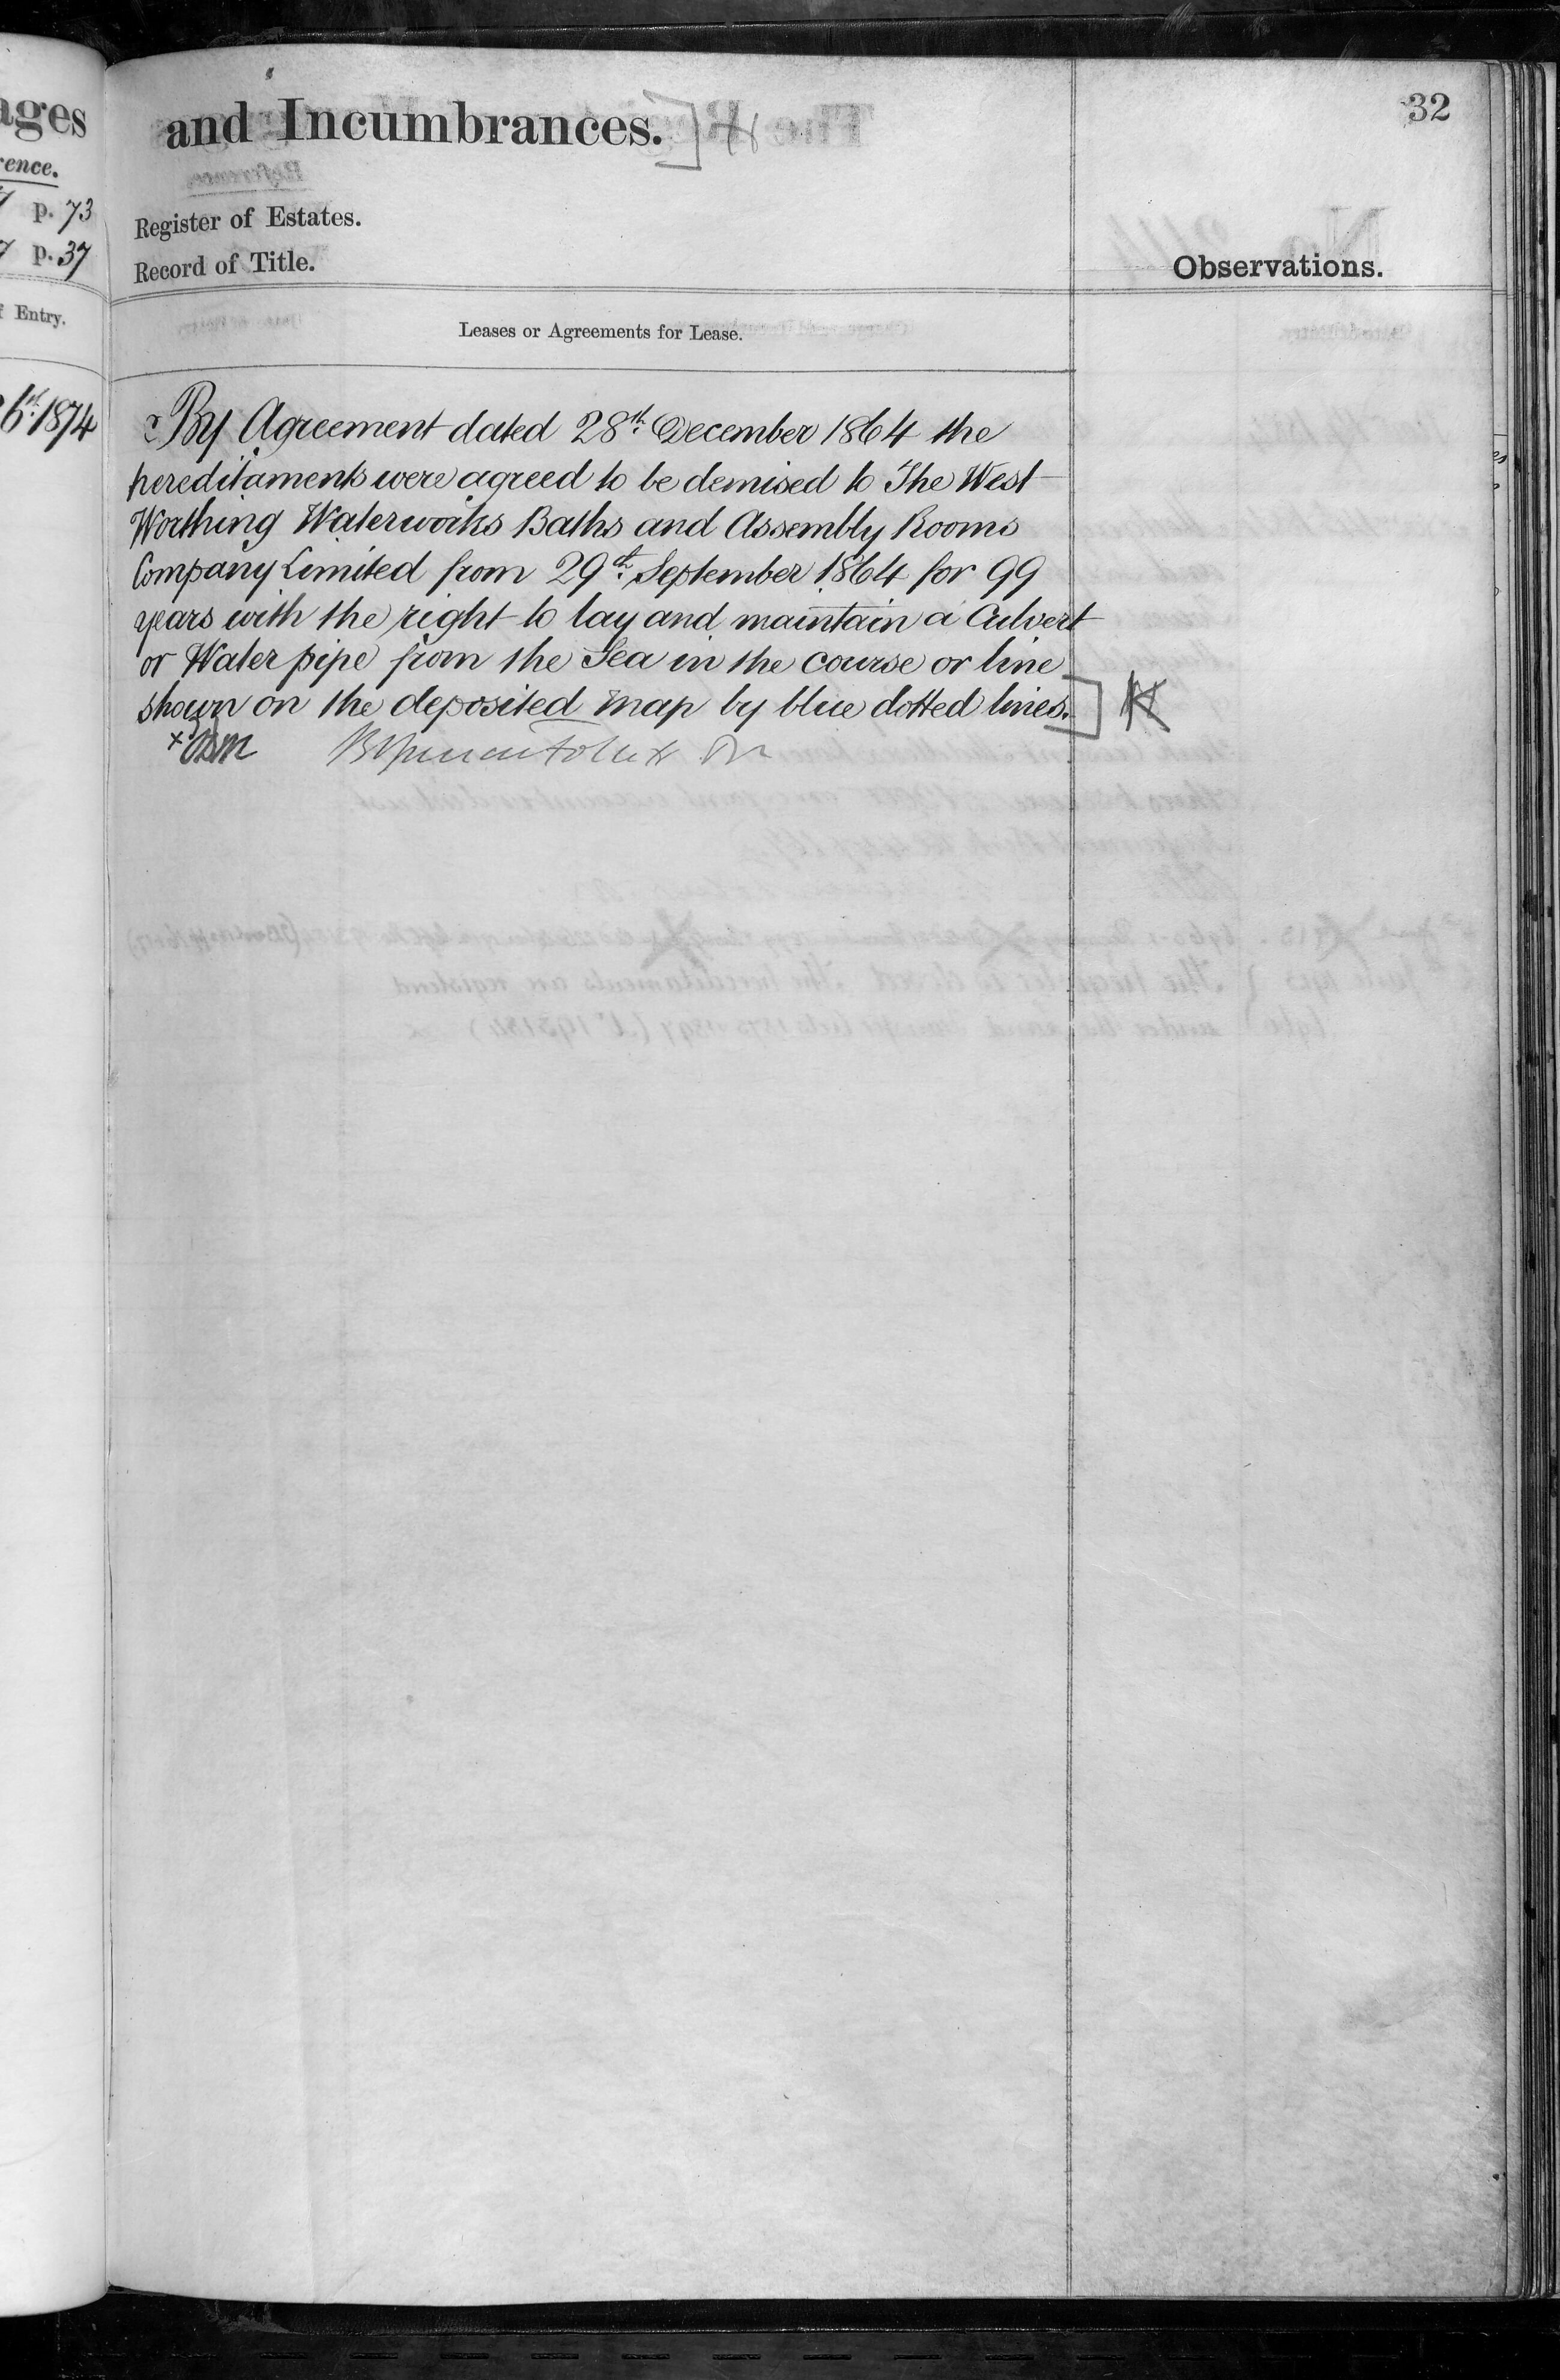 ages
rence.
p. 73
p. 37
f Entry.
6th 1874
and Incumbrances.
32
Register of Estates.
Record of Title.
Observations.
Leases or Agreements for Lease.
By Agreement dated 28th December 1864 the
hereditaments were agreed to be demised to The West
Worthing Waterworks Baths and Assembly Rooms
Company Limited from 29th September 1864 for 99
years with the right to lay and maintain a Culvert
or Water pipe from the Sea in the course or line
shown on the deposited map by blue dotted lines.